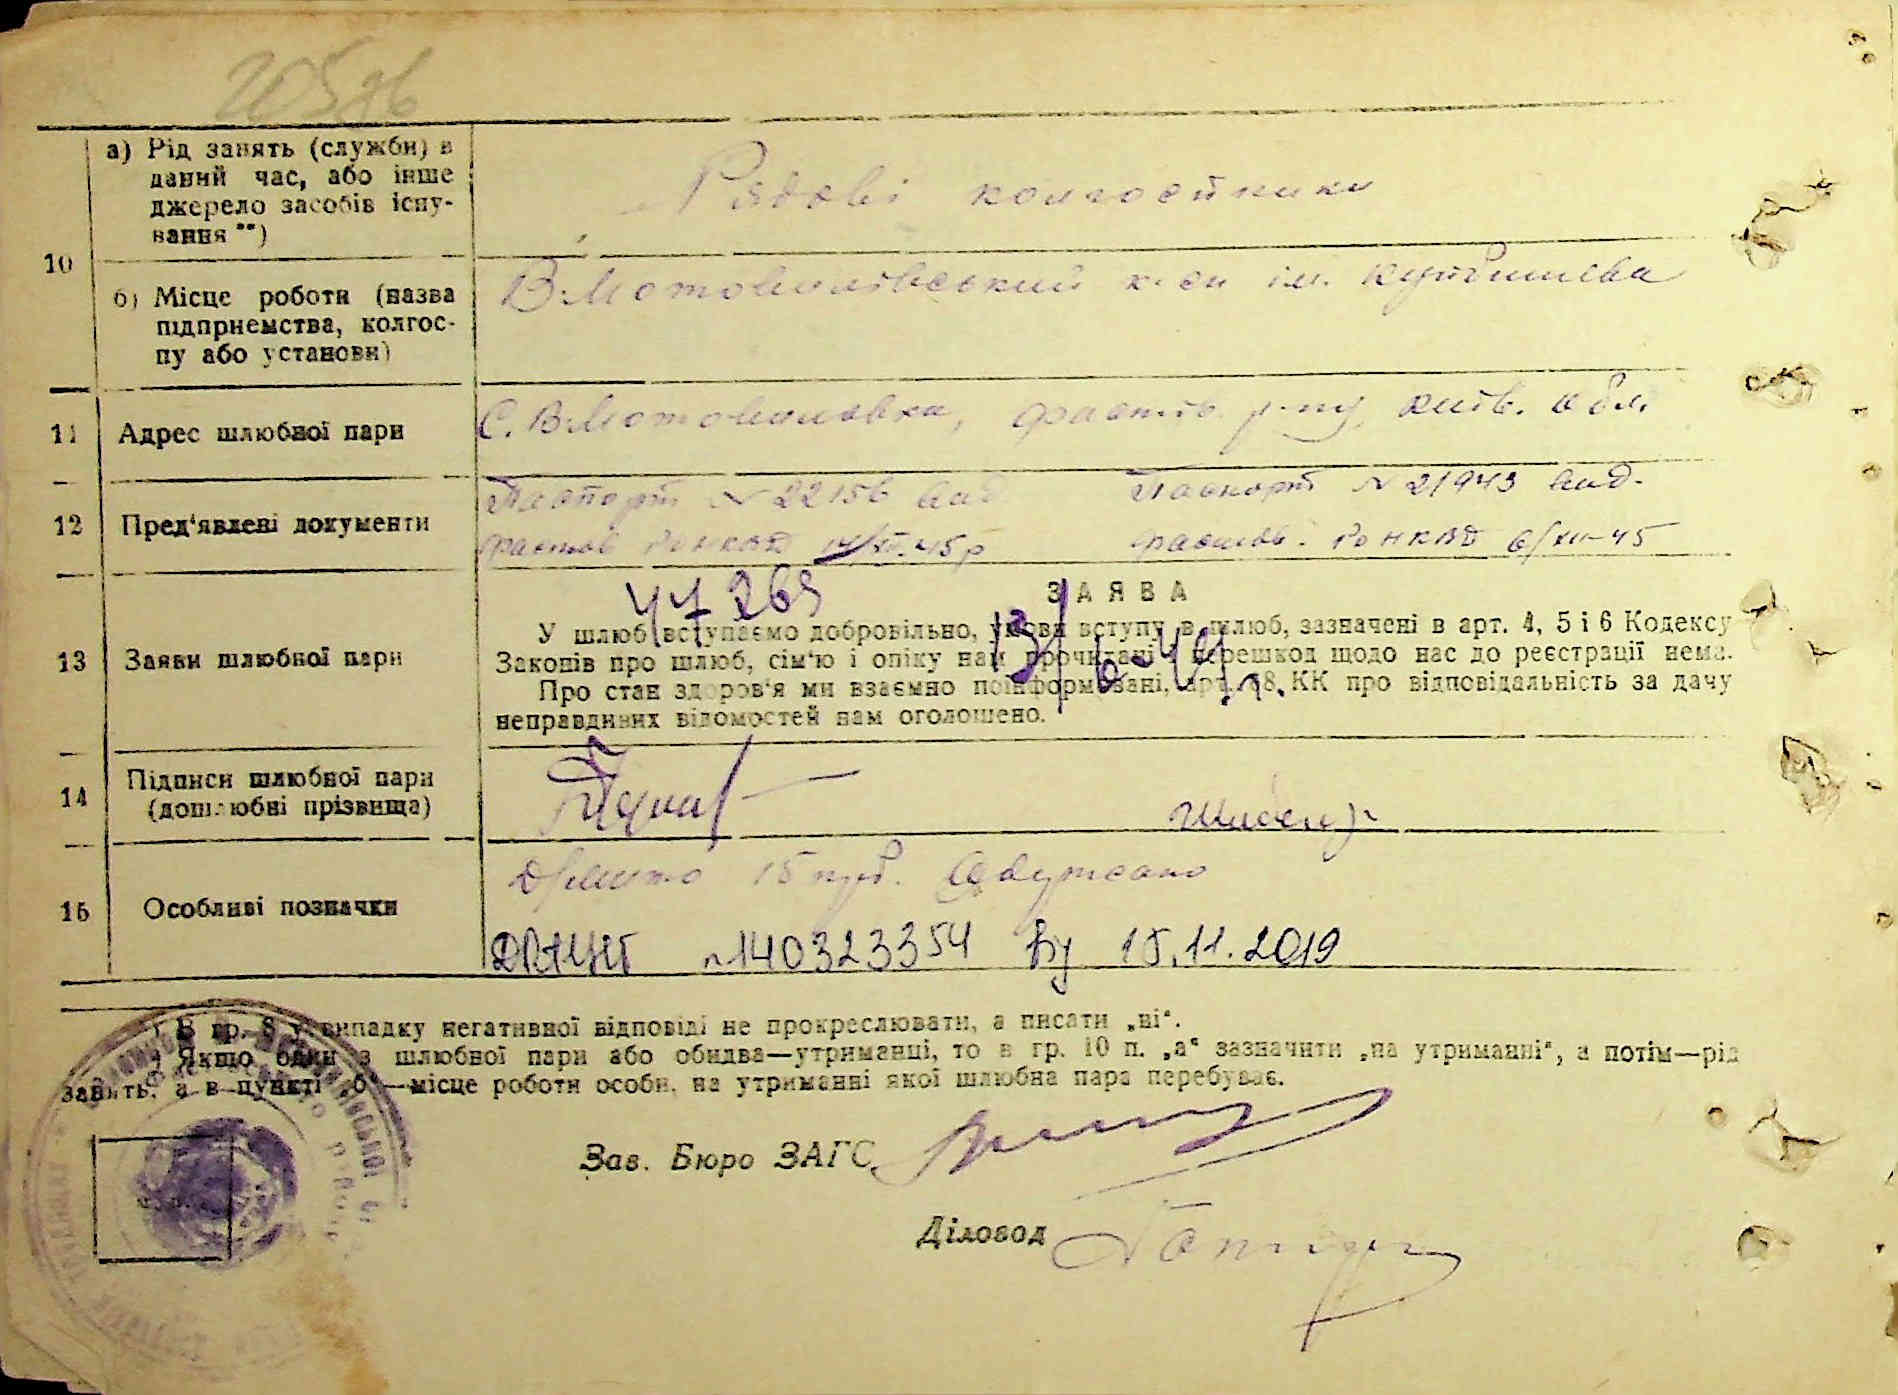 205 зв
10
а) Рід занять (служби) в
даний час, або інше
джерело засобів існу-
вання **)
Рядові колгоспники
б) Місце роботи (назва
підприємства, колгос-
пу або установи)
В-Мотовилівський к-сп ім. Куйбишева
11 Адрес шлюбної пари
С. В-Мотовилівка, Фастів. р-ну, Київ. обл.
12 Пред'явлені документи
Паспорт № 22156 вид
Фастов РОНКВД 14/XII.45р
Паспорт № 21943 вид.
Фастов. РОНКВД 6/XII-45
47 269
13 Заяви шлюбної пари
ЗАЯВА
У шлюб вступаємо добровільно, умови вступу в шлюб, зазначені в арт. 4, 5 і 6 Кодексу
Законів про шлюб, сім'ю і опіку нам прочитані і перешкод щодо нас до реєстрації нема.
Про стан здоров'я ми взаємно поінформовані, арт. 88 КК про відповідальність за дачу
неправдивих відомостей нам оголошено.
14 Підписи шлюбної пари
(дошлюбні прізвища)
15 Особливі позначки
15 руб.
ДРАЦСГ №140323354 від 15.11.2019
*) В гр. 8 у випадку негативної відповіді не прокреслювати, а писати „ні“.
**) Якщо один з шлюбної пари або обидва—утриманці, то в гр. 10 п. „а“ зазначити „на утриманні“, а потім—рід
занять, а в пункті „б“—місце роботи особи, на утриманні якої шлюбна пара перебуває.
Зав. Бюро ЗАГС
Діловод